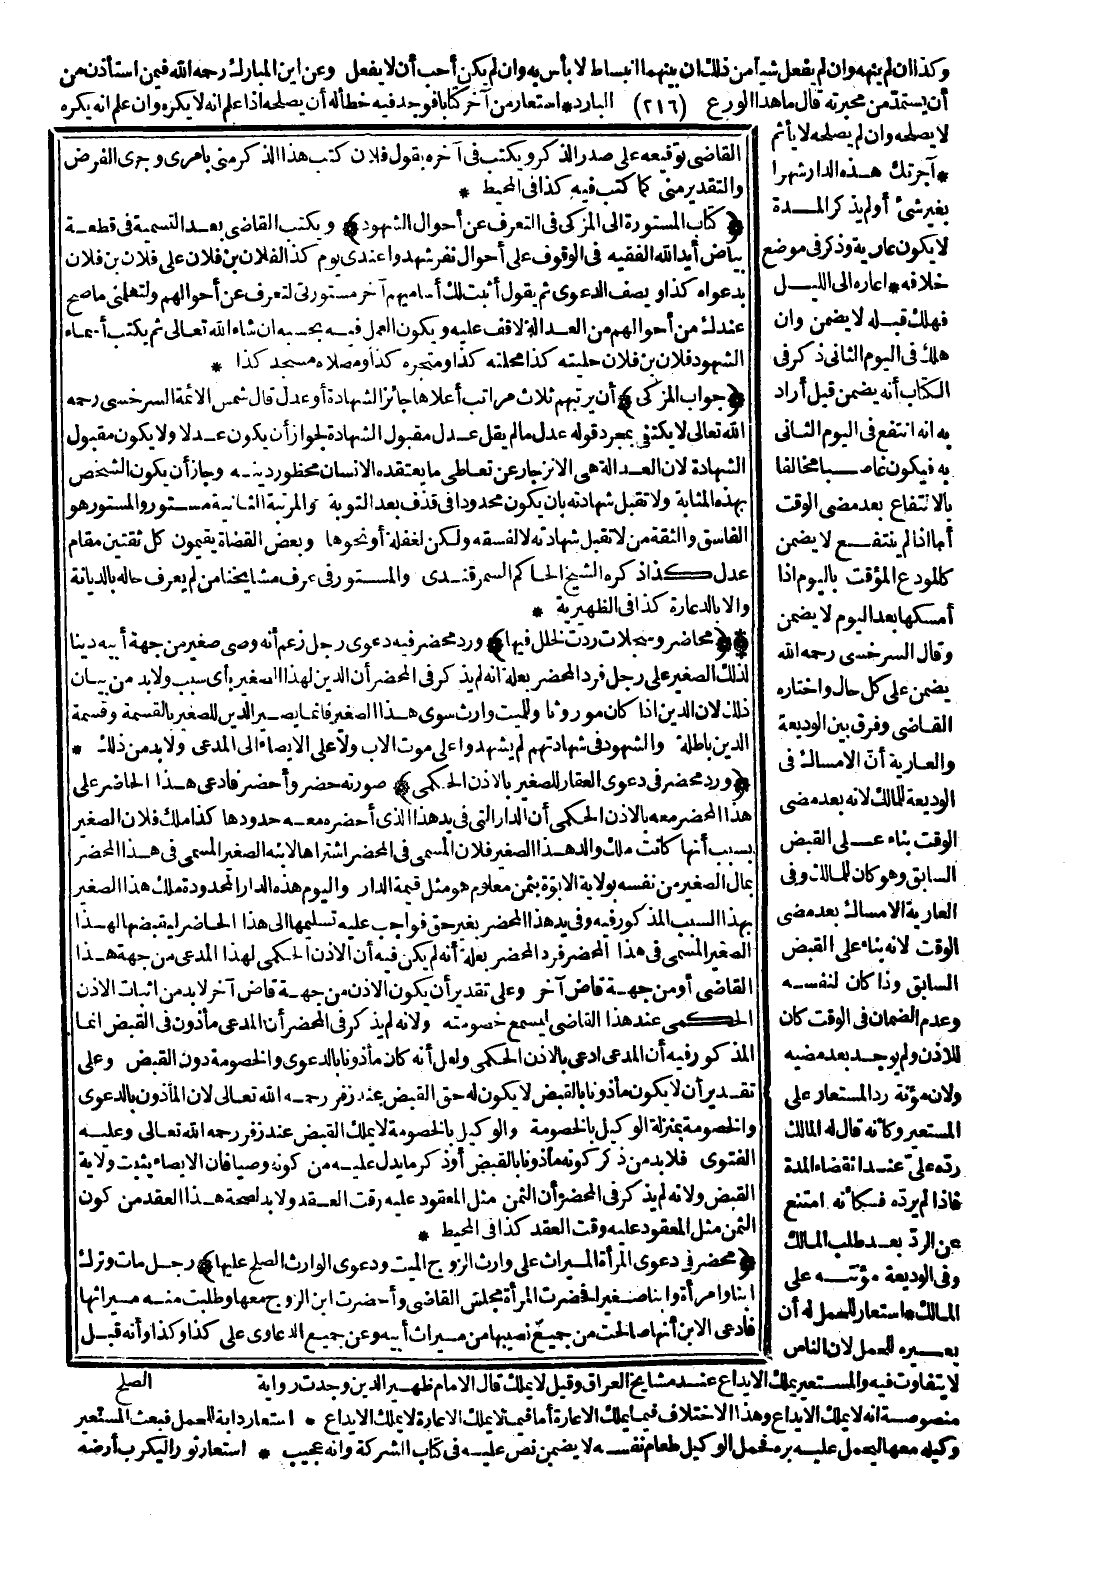 وكذا ان لم ينهه وان لم يفعل شيأ من ذلك ان بينهما انبساط لا بأس به وان لم يكن أحب أن لا يفعل وعن ابن المبارك رحمه الله فيمن استأذن من
أن يستمد من محبرته قال ما هذا الورع (٢١٦) البارد * استعار من آخر كتابا فوجد فيه خطأ له أن يصلحه اذا علم انه لا يكره وان علم انه يكره
لا يصلحه وان لم يصلحه لا يأثم
* آجرتك هذه الدار شهرا
بغير شئ أو لم يذكر المدة
لا يكون عارية وذكر فى موضع
خلافه * اعاره الى الليل
فهلك قبله لا يضمن وان
هلك فى اليوم الثانى ذكر فى
الكتاب أنه يضمن قيل أراد
به انه انتفع فى اليوم الثانى
به فيكون غاصبا مخالفا
بالانتفاع بعد مضى الوقت
أما اذا لم ينتفع لا يضمن
كالمودع المؤقت باليوم اذا
أمسكها بعد اليوم لا يضمن
وقال السرخسى رحمه الله
يضمن على كل حال واختاره
القاضى وفرق بين الوديعة
والعارية أن الامساك فى
الوديعة للمالك لانه بعد مضى
الوقت بناء على القبض
السابق وهو كان للمالك وفى
العارية الامساك بعد مضى
الوقت لانه بناء على القبض
السابق وذا كان لنفسه
وعدم الضمان فى الوقت كان
للاذن ولم يوجد بعد مضيه
ولان مؤنة رد المستعار على
المستعير وكأنه قال له المالك
رده على عند انقضاء المدة
فاذا لم يرده فكأنه امتنع
عن الرد بعد طلب المالك
وفى الوديعة مؤنته على
المالك * استعار للعمل له أن
يعيره للعمل لان الناس
القاضى توقيعه على صدر الذكر ويكتب فى آخره يقول فلان كتب هذا الذكر منى بامرى وجرى الفرض
والتقدير منى كما كتب فيه كذا فى المحيط *
﴿كتاب المستورة الى المزكى فى التعرف عن أحوال الشهود﴾ ويكتب القاضى بعد التسمية فى قطعة
بياض أيد الله الفقيه فى الوقوف على أحوال نفر شهدوا عندى يوم كذا لفلان بن فلان على فلان بن فلان
بدعواه كذا ويصف الدعوى ثم يقول أثبت لك أساميهم آخر مستورتى لتعرف عن أحوالهم ولتعلمنى ما صح
عندك من أحوالهم من العدالة لاقف عليه ويكون العمل فيه بحسبه ان شاء الله تعالى ثم يكتب أسماء
الشهود فلان بن فلان حليته كذا محلته كذا ومتجره كذا ومصلاه مسجد كذا *
﴿جواب المزكى﴾ أن يرتبهم ثلاث مراتب أعلاها جائز الشهادة أو عدل قال شمس الائمة السرخسى رحمه
الله تعالى لا يكتفى بمجرد قوله عدل ما لم يقل عدل مقبول الشهادة لجواز أن يكون عدلا ولا يكون مقبول
الشهادة لان العدالة هى الانزجار عن تعاطى ما يعتقده الانسان محظور دينه وجاز أن يكون الشخص
بهذه المثابة ولا تقبل شهادته بان يكون محدودا فى قذف بعد التوبة والمرتبة الثانية مستور والمستور هو
الفاسق والثقة من لا تقبل شهادته لا لفسقه ولكن لغفلة أو نحوها وبعض القضاة يقيمون كل ثقتين مقام
عدل كذا ذكره الشيخ الحاكم السمرقندى والمستور فى عرف مشايخنا من لم يعرف حاله بالديانة
ولا بالدعارة كذا فى الظهيرية *
﴿محاضر وسجلات ردت لخلل فيها﴾ ورد محضر فيه دعوى رجل زعم أنه وصى صغير من جهة أبيه دينا
لذلك الصغير على رجل فرد المحضر بعلة أنه لم يذكر فى المحضر أن الدين لهذا الصغير بأى سبب ولا بد من بيان
ذلك لان الدين اذا كان موروثا وللميت وارث سوى هذا الصغير فانما يصير الدين للصغير بالقسمة وقسمة
الدين باطلة والشهود فى شهادتهم لم يشهدوا على موت الاب ولا على الايصاء الى المدعى ولا بد من ذلك *
﴿ورد محضر فى دعوى العقار للصغير بالاذن الحكمى﴾ صورته حضر وأحضر فادعى هذا الحاضر على
هذا المحضر معه بالاذن الحكمى أن الدار التى فى يد هذا الذى أحضره معه حدودها كذا ملك فلان الصغير
بسبب أنها كانت ملك والد هذا الصغير فلان المسمى فى المحضر اشتراها لابنه الصغير المسمى فى هذا المحضر
بمال الصغير من نفسه بولاية الابوة بثمن معلوم هو مثل قيمة الدار واليوم هذه الدار المحدودة ملك هذا الصغير
بهذا السبب المذكور فيه وفى يد هذا المحضر بغير حق فواجب عليه تسليمها الى هذا الحاضر ليقبضها لهذا
الصغير المسمى فى هذا المحضر فرد المحضر بعلة أنه لم يكن فيه أن الاذن الحكمى لهذا المدعى من جهة هذا
القاضى أو من جهة قاض آخر وعلى تقدير أن يكون الاذن من جهة قاض آخر لا بد من اثبات الاذن
الحكمى عند هذا القاضى ليسمع خصومته ولانه لم يذكر فى المحضر أن المدعى مأذون فى القبض انما
المذكور فيه أن المدعى ادعى بالاذن الحكمى ولعل أنه كان مأذونا بالدعوى والخصومة دون القبض وعلى
تقدير أن لا يكون مأذونا بالقبض لا يكون له حق القبض عند زفر رحمه الله تعالى لان المأذون بالدعوى
والخصومة بمنزلة الوكيل بالخصومة والوكيل بالخصومة لا يملك القبض عند زفر رحمه الله تعالى وعليه
الفتوى فلا بد من ذكر كونه مأذونا بالقبض أو ذكر ما يدل عليه من كونه وصيا فان الايصاء يثبت ولاية
القبض ولانه لم يذكر فى المحضر أن الثمن مثل المعقود عليه وقت العقد ولا بد لصحة هذا العقد من كون
الثمن مثل المعقود عليه وقت العقد كذا فى المحيط *
﴿محضر فى دعوى المرأة الميراث على وارث الزوج الميت ودعوى الوارث الصلح عليها﴾ رجل مات وترك
ابنا وامرأة وابنا صغيرا فحضرت المرأة مجلس القاضى وأحضرت ابن الزوج معها وطلبت منه ميراثها
فادعى الابن أنها صالحت من جميع نصيبها من ميراث أبيه وعن جميع الدعاوى على كذا وكذا وأنه قبل
لا يتفاوت فيه والمستعير يملك الايداع عند مشايخ العراق وقيل لا يملك قال الامام ظهير الدين وجدت رواية الصلح
منصوصة انه لا يملك الايداع وهذا الاختلاف فيما يملك الاعارة أما فيما لا يملك الاعارة لا يملك الايداع * استعار دابة للعمل فبعث المستعير
وكيله معها ليحمل عليه بره فحمل الوكيل طعام نفسه لا يضمن نص عليه فى كتاب الشركة وانه عجيب * استعار ثورا ليكرب أرضه